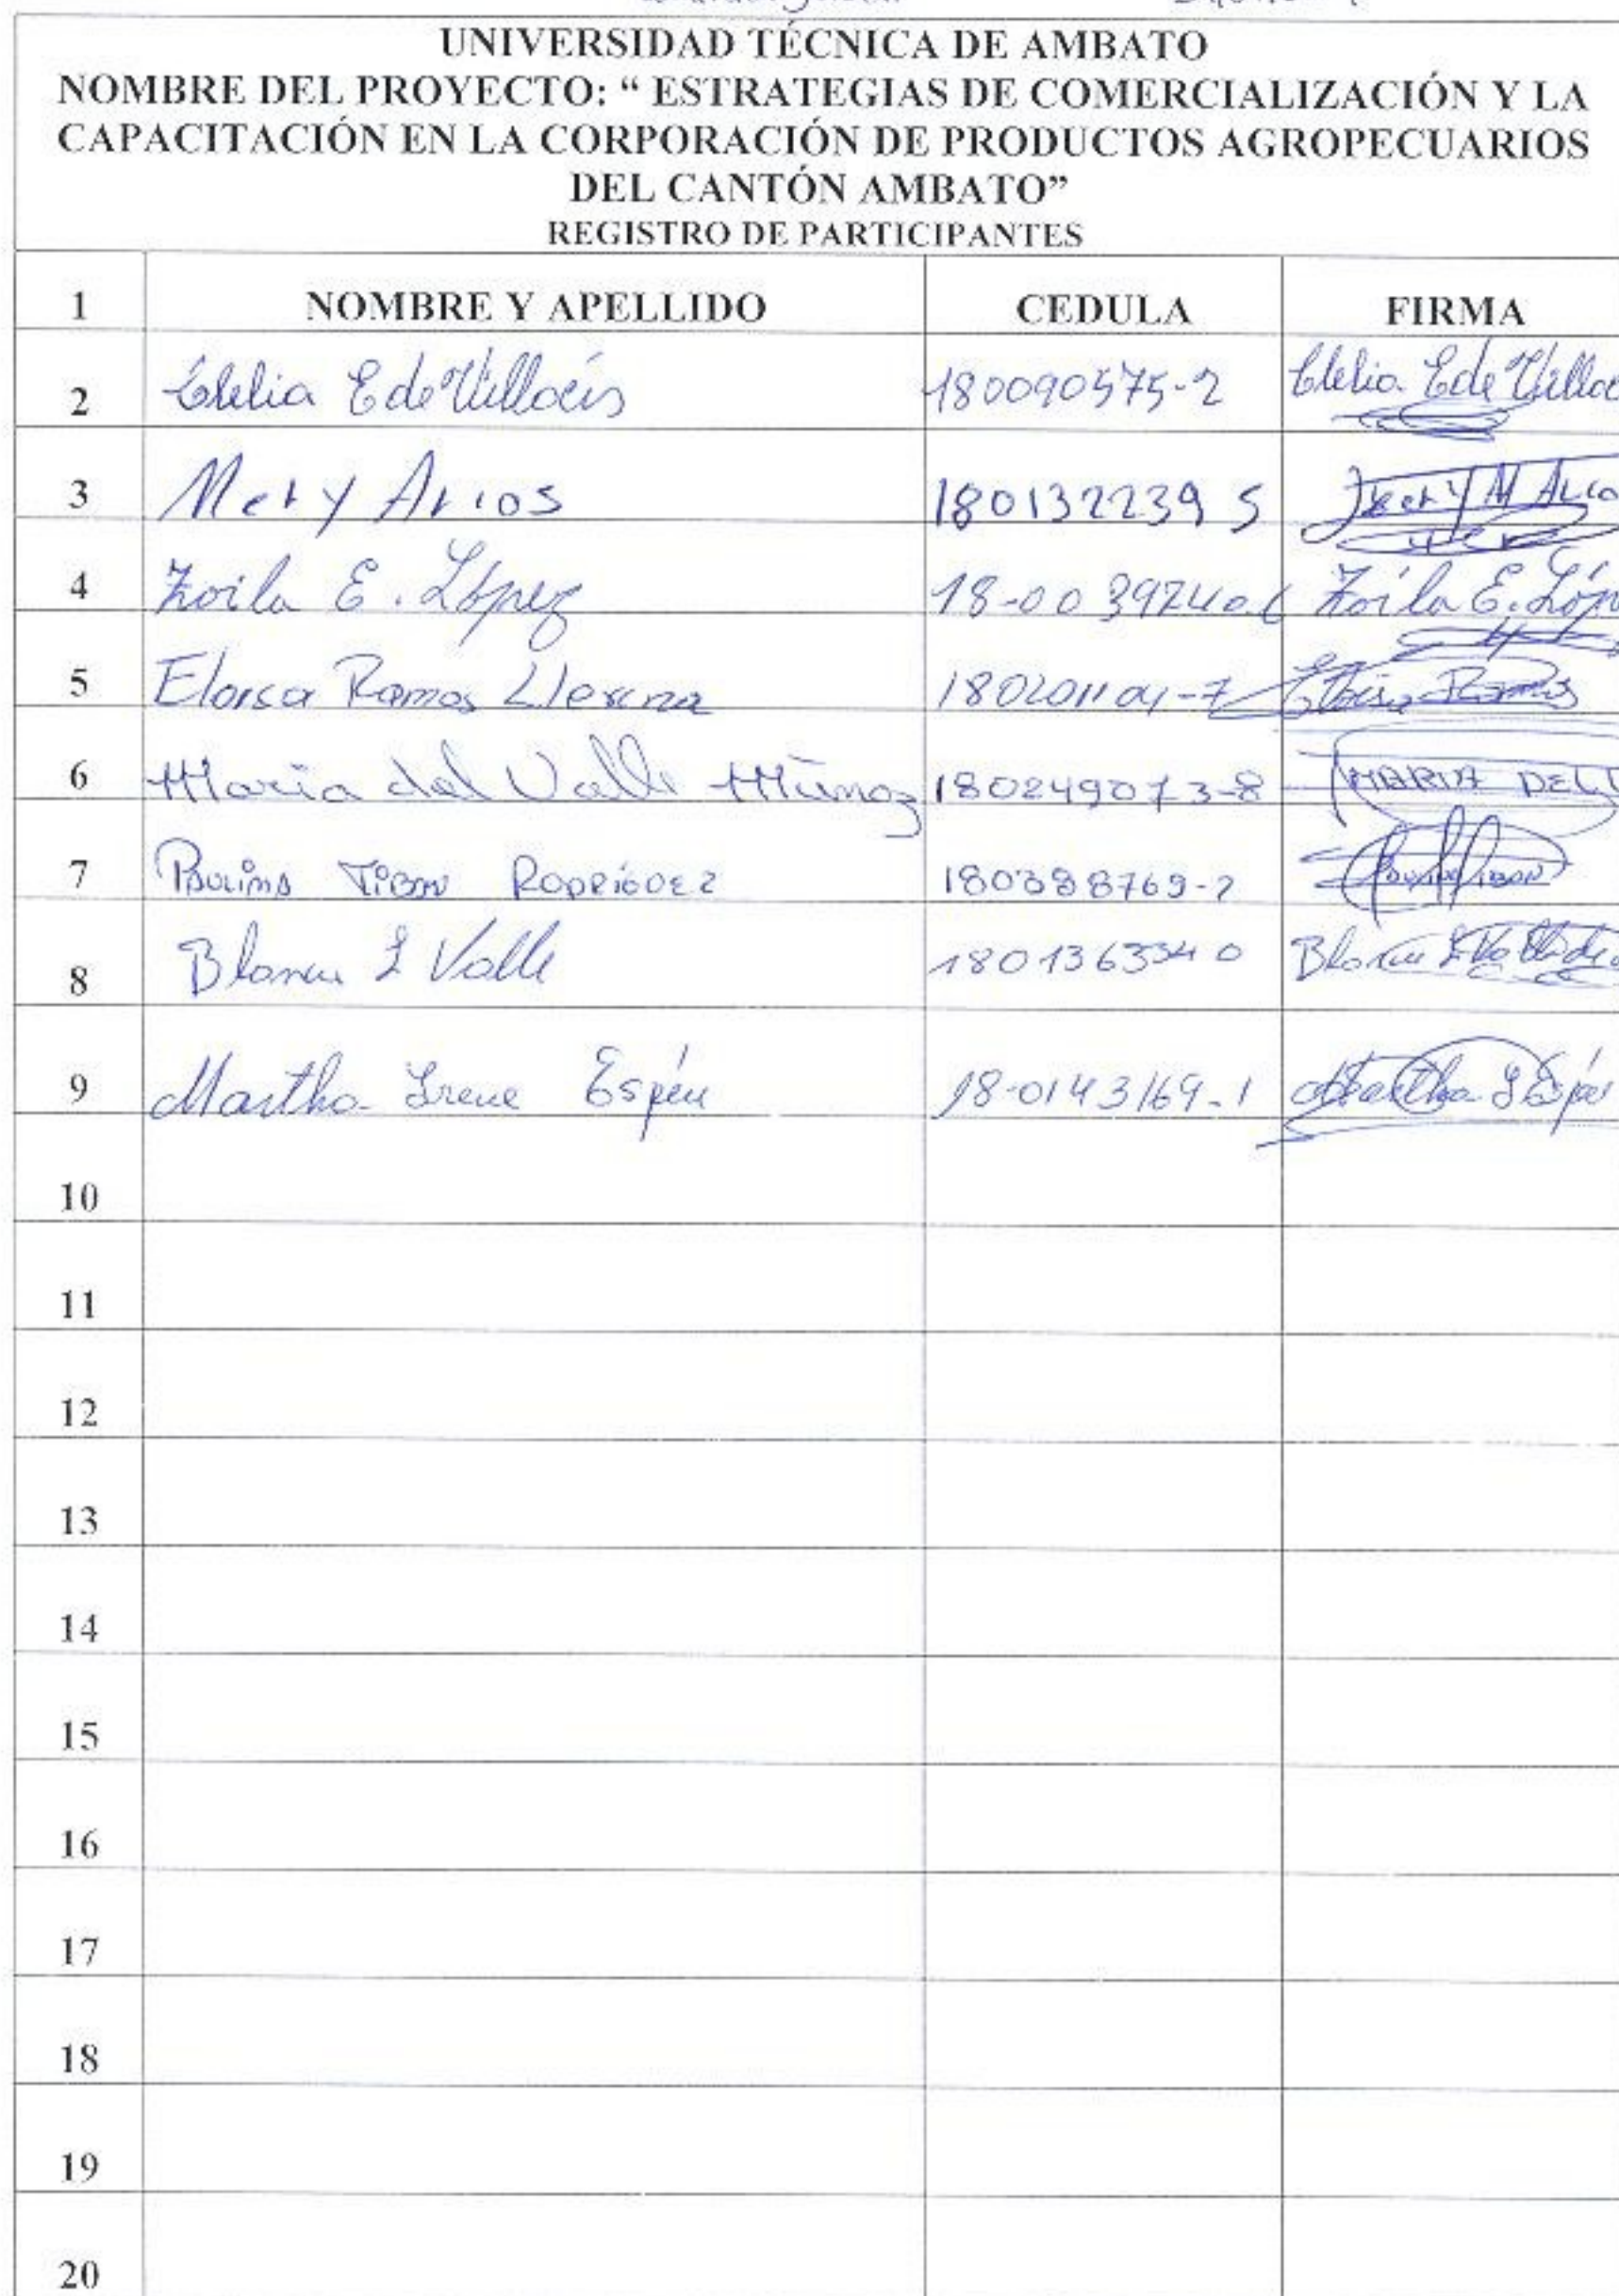 UNIVERSIDAD TÉCNICA DE AMBATO
NOMBRE DEL PROYECTO: “ ESTRATEGIAS DE COMERCIALIZACIÓN Y LA
CAPACITACIÓN EN LA CORPORACIÓN DE PRODUCTOS AGROPECUARIOS
DEL CANTÓN AMBATO”
REGISTRO DE PARTICIPANTES
1 NOMBRE Y APELLIDO CEDULA FIRMA
2 Clelia E de Villacís 180090575-2 Clelia E de Villac
3 Mery Arcos 180132239 5
4 Zoila E. López 18-00 39240.6 Zoila E. Lóp
5 Eloisa Ramos Llerena 180201104-7 Eloisa Ramos
6 Maria del Valle Muñoz 180249073-8 MARIA DEL
7 Paulina Tibán RODRÍGUEZ 180388769-2
8 Blanca L Valle 180136334 0 Blanca L
9 Martha Irene Espín 18-0143169-1 Martha I Espín
10
11
12
13
14
15
16
17
18
19
20